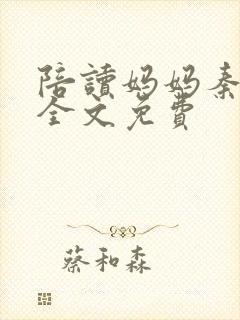 陪讀妈妈秦
全文免費
蔡和森